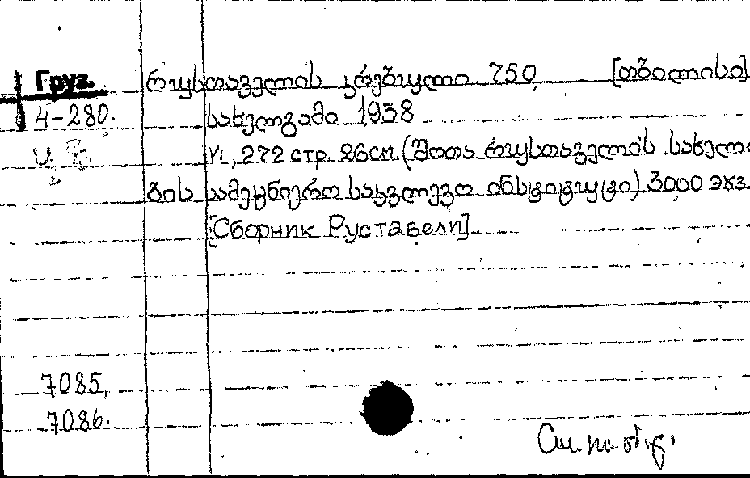 Груз. რუსთაველის კრებული 750 [თბილისი]
4-280. სახელგამი 1938
VI, 272 стр. 26см. (შოთა რუსთაველის სახელო
ბის სამეცნიერო საკვლევო ინსტიტუტი) 3000 экз.
[Сборник Руставели]
7085,
7086.